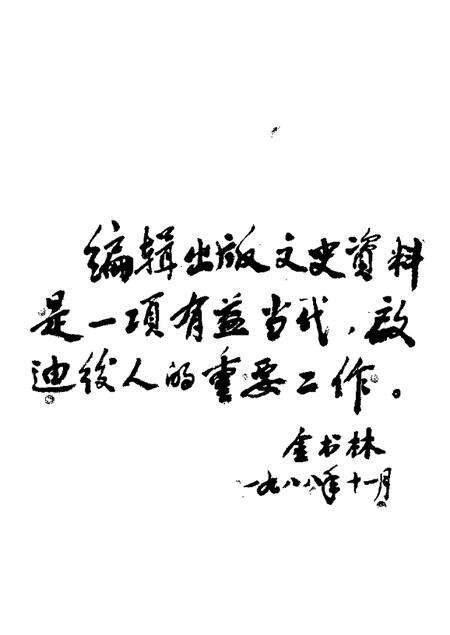 编辑出版文史資料
是一項有益当代，启
迪後人的重要工作。
金书林
一九八八年十一月